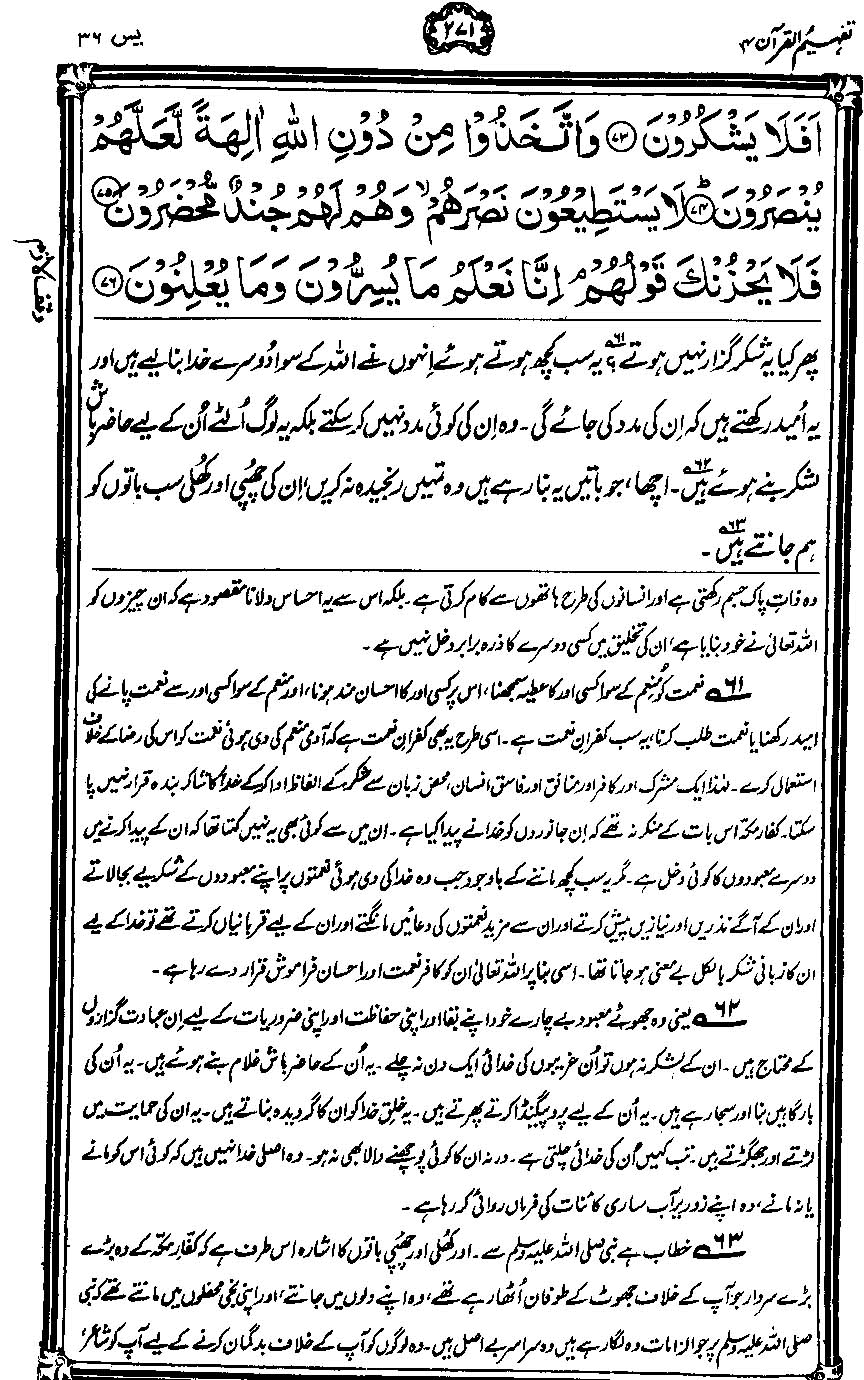 تفہیم القرآن ۴
۲۷۱
یٰس ۳۶
اَفَلَا يَشْكُرُوْنَ ﴿۷۳﴾ وَاتَّخَذُوْا مِنْ دُوْنِ اللّٰهِ اٰلِهَةً لَّعَلَّهُمْ
يُنْصَرُوْنَ ﴿۷۴﴾ؕ لَا يَسْتَطِيْعُوْنَ نَصْرَهُمْ ۙ وَهُمْ لَهُمْ جُنْدٌ مُّحْضَرُوْنَ ﴿۷۵﴾
فَلَا يَحْزُنْكَ قَوْلُهُمْ ۘ اِنَّا نَعْلَمُ مَا يُسِرُّوْنَ وَمَا يُعْلِنُوْنَ ﴿۷۶﴾
وقف لازم
پھر کیا یہ شکر گزار نہیں ہوتے؟ ۶۱ یہ سب کچھ ہوتے ہوئے اِنہوں نے اللہ کے سوا دُوسرے خدا بنا لیے ہیں اور
یہ اُمید رکھتے ہیں کہ اِن کی مدد کی جائے گی۔ وہ اِن کی کوئی مدد نہیں کر سکتے بلکہ یہ لوگ اُلٹے اُن کے لیے حاضر باش
لشکر بنے ہوئے ہیں۔ ۶۲ اچھا، جو باتیں یہ بنا رہے ہیں وہ تمہیں رنجیدہ نہ کریں، اِن کی چھپی اور کھُلی سب باتوں کو
ہم جانتے ہیں ۶۳۔
وہ ذاتِ پاک جسم رکھتی ہے اور انسانوں کی طرح ہاتھوں سے کام کرتی ہے۔ بلکہ اس سے یہ احساس دلانا مقصود ہے کہ ان چیزوں کو
اللہ تعالیٰ نے خود بنایا ہے، ان کی تخلیق میں کسی دوسرے کا ذرہ برابر دخل نہیں ہے۔
۶۱ نعمت کو مُنعِم کے سوا کسی اور کا عطیہ سمجھنا، اس پر کسی اور کا احسان مند ہونا، اور منعم کے سوا کسی اور سے نعمت پانے کی
امید رکھنا یا نعمت طلب کرنا، یہ سب کفرانِ نعمت ہے۔ اسی طرح یہ بھی کفرانِ نعمت ہے کہ آدمی منعم کی دی ہوئی نعمت کو اس کی رضا کے خلاف
استعمال کرے۔ لہٰذا ایک مشرک اور کافر اور منافق اور فاسق انسان محض زبان سے شکر کے الفاظ ادا کر کے خدا کا شاکر بندہ قرار نہیں پا
سکتا۔ کفارِ مکہ اس بات کے منکر نہ تھے کہ اِن جانوروں کو خدا نے پیدا کیا ہے۔ ان میں سے کوئی بھی یہ نہیں کہتا تھا کہ ان کے پیدا کرنے میں
دوسرے معبودوں کا کوئی دخل ہے۔ مگر یہ سب کچھ ماننے کے باوجود جب وہ خدا کی دی ہوئی نعمتوں پر اپنے معبودوں کے شکریے بجا لاتے
اور ان کے آگے نذریں اور نیازیں پیش کرتے اور ان سے مزید نعمتوں کی دعائیں مانگتے اور ان کے لیے قربانیاں کرتے تھے تو خدا کے لیے
ان کا زبانی شکر بالکل بے معنی ہو جاتا تھا۔ اسی بنا پر اللہ تعالیٰ ان کو کافرِ نعمت اور احسان فراموش قرار دے رہا ہے۔
۶۲ یعنی وہ جھوٹے معبود بے چارے خود اپنے بقا اور اپنی حفاظت اور اپنی ضروریات کے لیے اِن عبادت گزاروں
کے محتاج ہیں۔ ان کے لشکر نہ ہوں تو اُن غریبوں کی خدائی ایک دن نہ چلے۔ یہ اُن کے حاضر باش غلام بنے ہوئے ہیں۔ یہ اُن کی
بارگاہیں بنا اور سجا رہے ہیں۔ یہ اُن کے لیے پروپیگنڈا کرتے پھرتے ہیں۔ یہ خلقِ خدا کو ان کا گرویدہ بناتے ہیں۔ یہ ان کی حمایت میں
لڑتے اور جھگڑتے ہیں۔ تب کہیں اُن کی خدائی چلتی ہے۔ ورنہ ان کا کوئی پوچھنے والا بھی نہ ہو۔ وہ اصلی خدا نہیں ہیں کہ کوئی اس کو مانے
یا نہ مانے، وہ اپنے زور پر آپ ساری کائنات کی فرماں روائی کر رہا ہے۔
۶۳ خطاب ہے نبی صلی اللہ علیہ وسلم سے۔ اور کھُلی اور چھپی باتوں کا اشارہ اس طرف ہے کہ کفارِ مکہ کے وہ بڑے
بڑے سردار جو آپ کے خلاف جھوٹ کے طوفان اُٹھا رہے تھے، وہ اپنے دلوں میں جانتے، اور اپنی نجی محفلوں میں مانتے تھے کہ نبی
صلی اللہ علیہ وسلم پر جو الزامات وہ لگا رہے ہیں وہ سراسر بے اصل ہیں۔ وہ لوگوں کو آپ کے خلاف بدگمان کرنے کے لیے آپ کو شاعر،